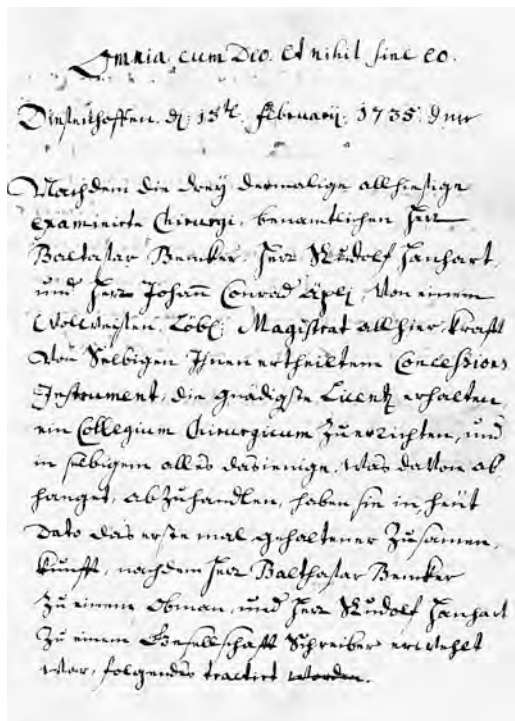 Omnia cum Deo. et nihil sine eo.
Diessenhoffen. d: 13te. February: 1735.
Nachdem die drey dermalige allhiesige
Examinirte Chirurgi, benamtlichen Herr
Baltasar Bencker, Herr Rudolf Hanhart,
und Herr Johañ Conrad Äpli, Von einem
Wollweisen Löbl: Magistrat allhier, krafft
Von Selbigen Ihnen ertheiltem Concessions
Instrument, die gnädigste Licentz erhalten,
ein Collegium Chirurgicum Zu errichten, und
in selbigem alles dasienige, was da Von ab
hanget, abZuhandlen, haben sie in heüt
Dato das erste mal gehaltener Zusamen,
kunfft, nachdem Herr Balthasar Bencker
Zu einem Obman, und Herr Rudolf Hanhart
Zu einem Gesellschafft Schreiber erwehlt
war, folgendes tractirt worden.